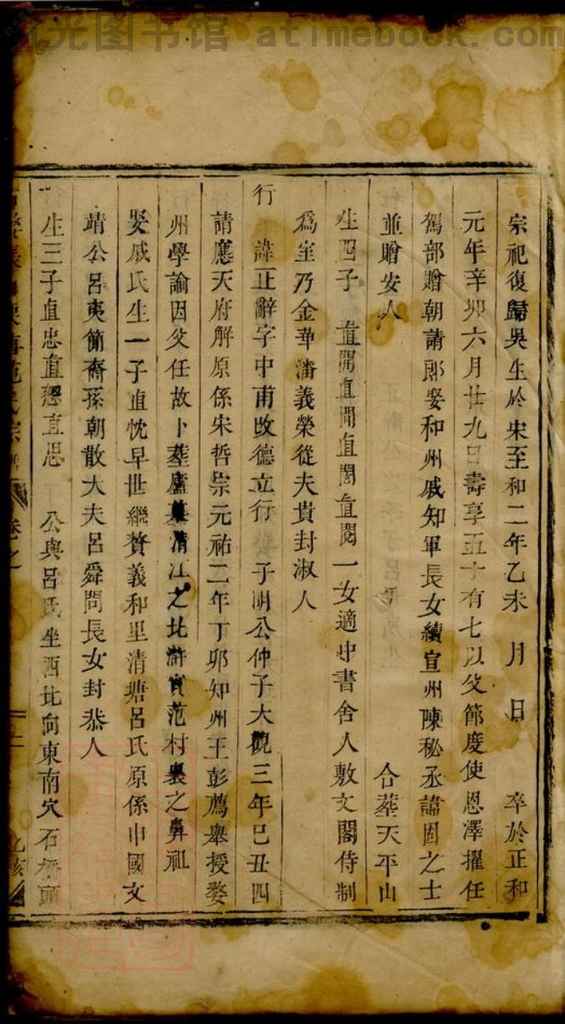 光图书馆 atimebook.com
宗祀復歸吳生於宋至和二年乙未 月 日 卒於正和
元年辛卯六月廿九日壽享五十有七以父節度使恩澤擢任
駕部贈朝請郎娶和州戚知軍長女續宣州陳秘丞諱固之士
並贈安人 合塟天平山
生四子 直 直 直 直 一女適中書舍人敷文閣侍制
為室乃金華潘義榮從夫貴封淑人
行 諱正辭字中甫政德立行 子明公仲子大觀三年己丑四
請應天府解原係宋哲宗元祐二年丁卯知州王彭薦舉授婺
州學諭因父任故卜塟廬墓清江之北滸實范村裏之鼻祖
娶戚氏生一子直忱早世繼贅義和里清塘呂氏原係申國文
靖公呂夷簡裔孫朝散大夫呂舜問長女封恭人
生三子直忠直 直思 公與呂氏坐西北向東南穴石橋頭
東 范氏宗 卷之